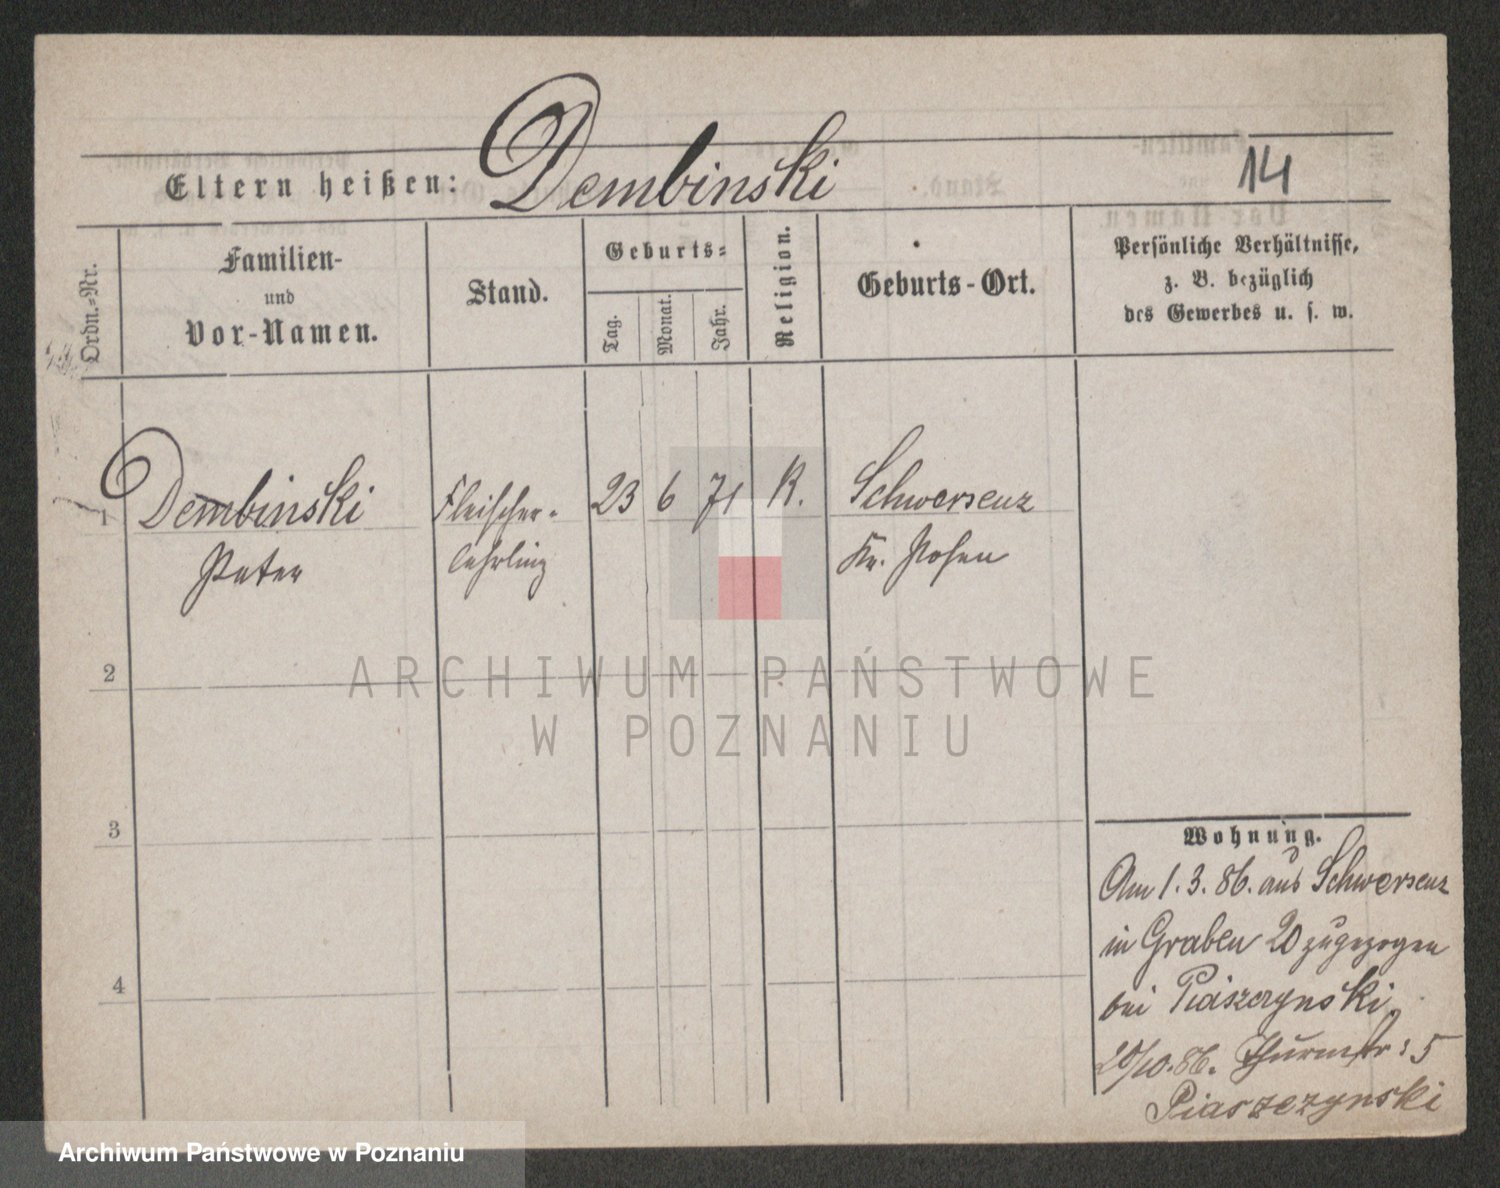 Eltern heißen: Dembinski
14
Ordn.-Nr.
Familien-
und
Vor-Namen.
Stand.
Geburts-
Tag.
Monat.
Jahr.
Religion.
Geburts-Ort.
Persönliche Verhältnisse,
z. B. bezüglich
des Gewerbes u. s. w.
1 Dembinski Fleischer- 23 6 71 K. Schwersenz
Peter lehrling Kr. Posen
2
3
4
Wohnung.
Am 1. 3. 86. aus Schwersenz
in Graben 20 zugezogen
bei Piaszczynski.
20/10.86. Thurmstr: 5
Piaszczynski
ARCHIWUM PAŃSTWOWE
W POZNANIU
Archiwum Państwowe w Poznaniu